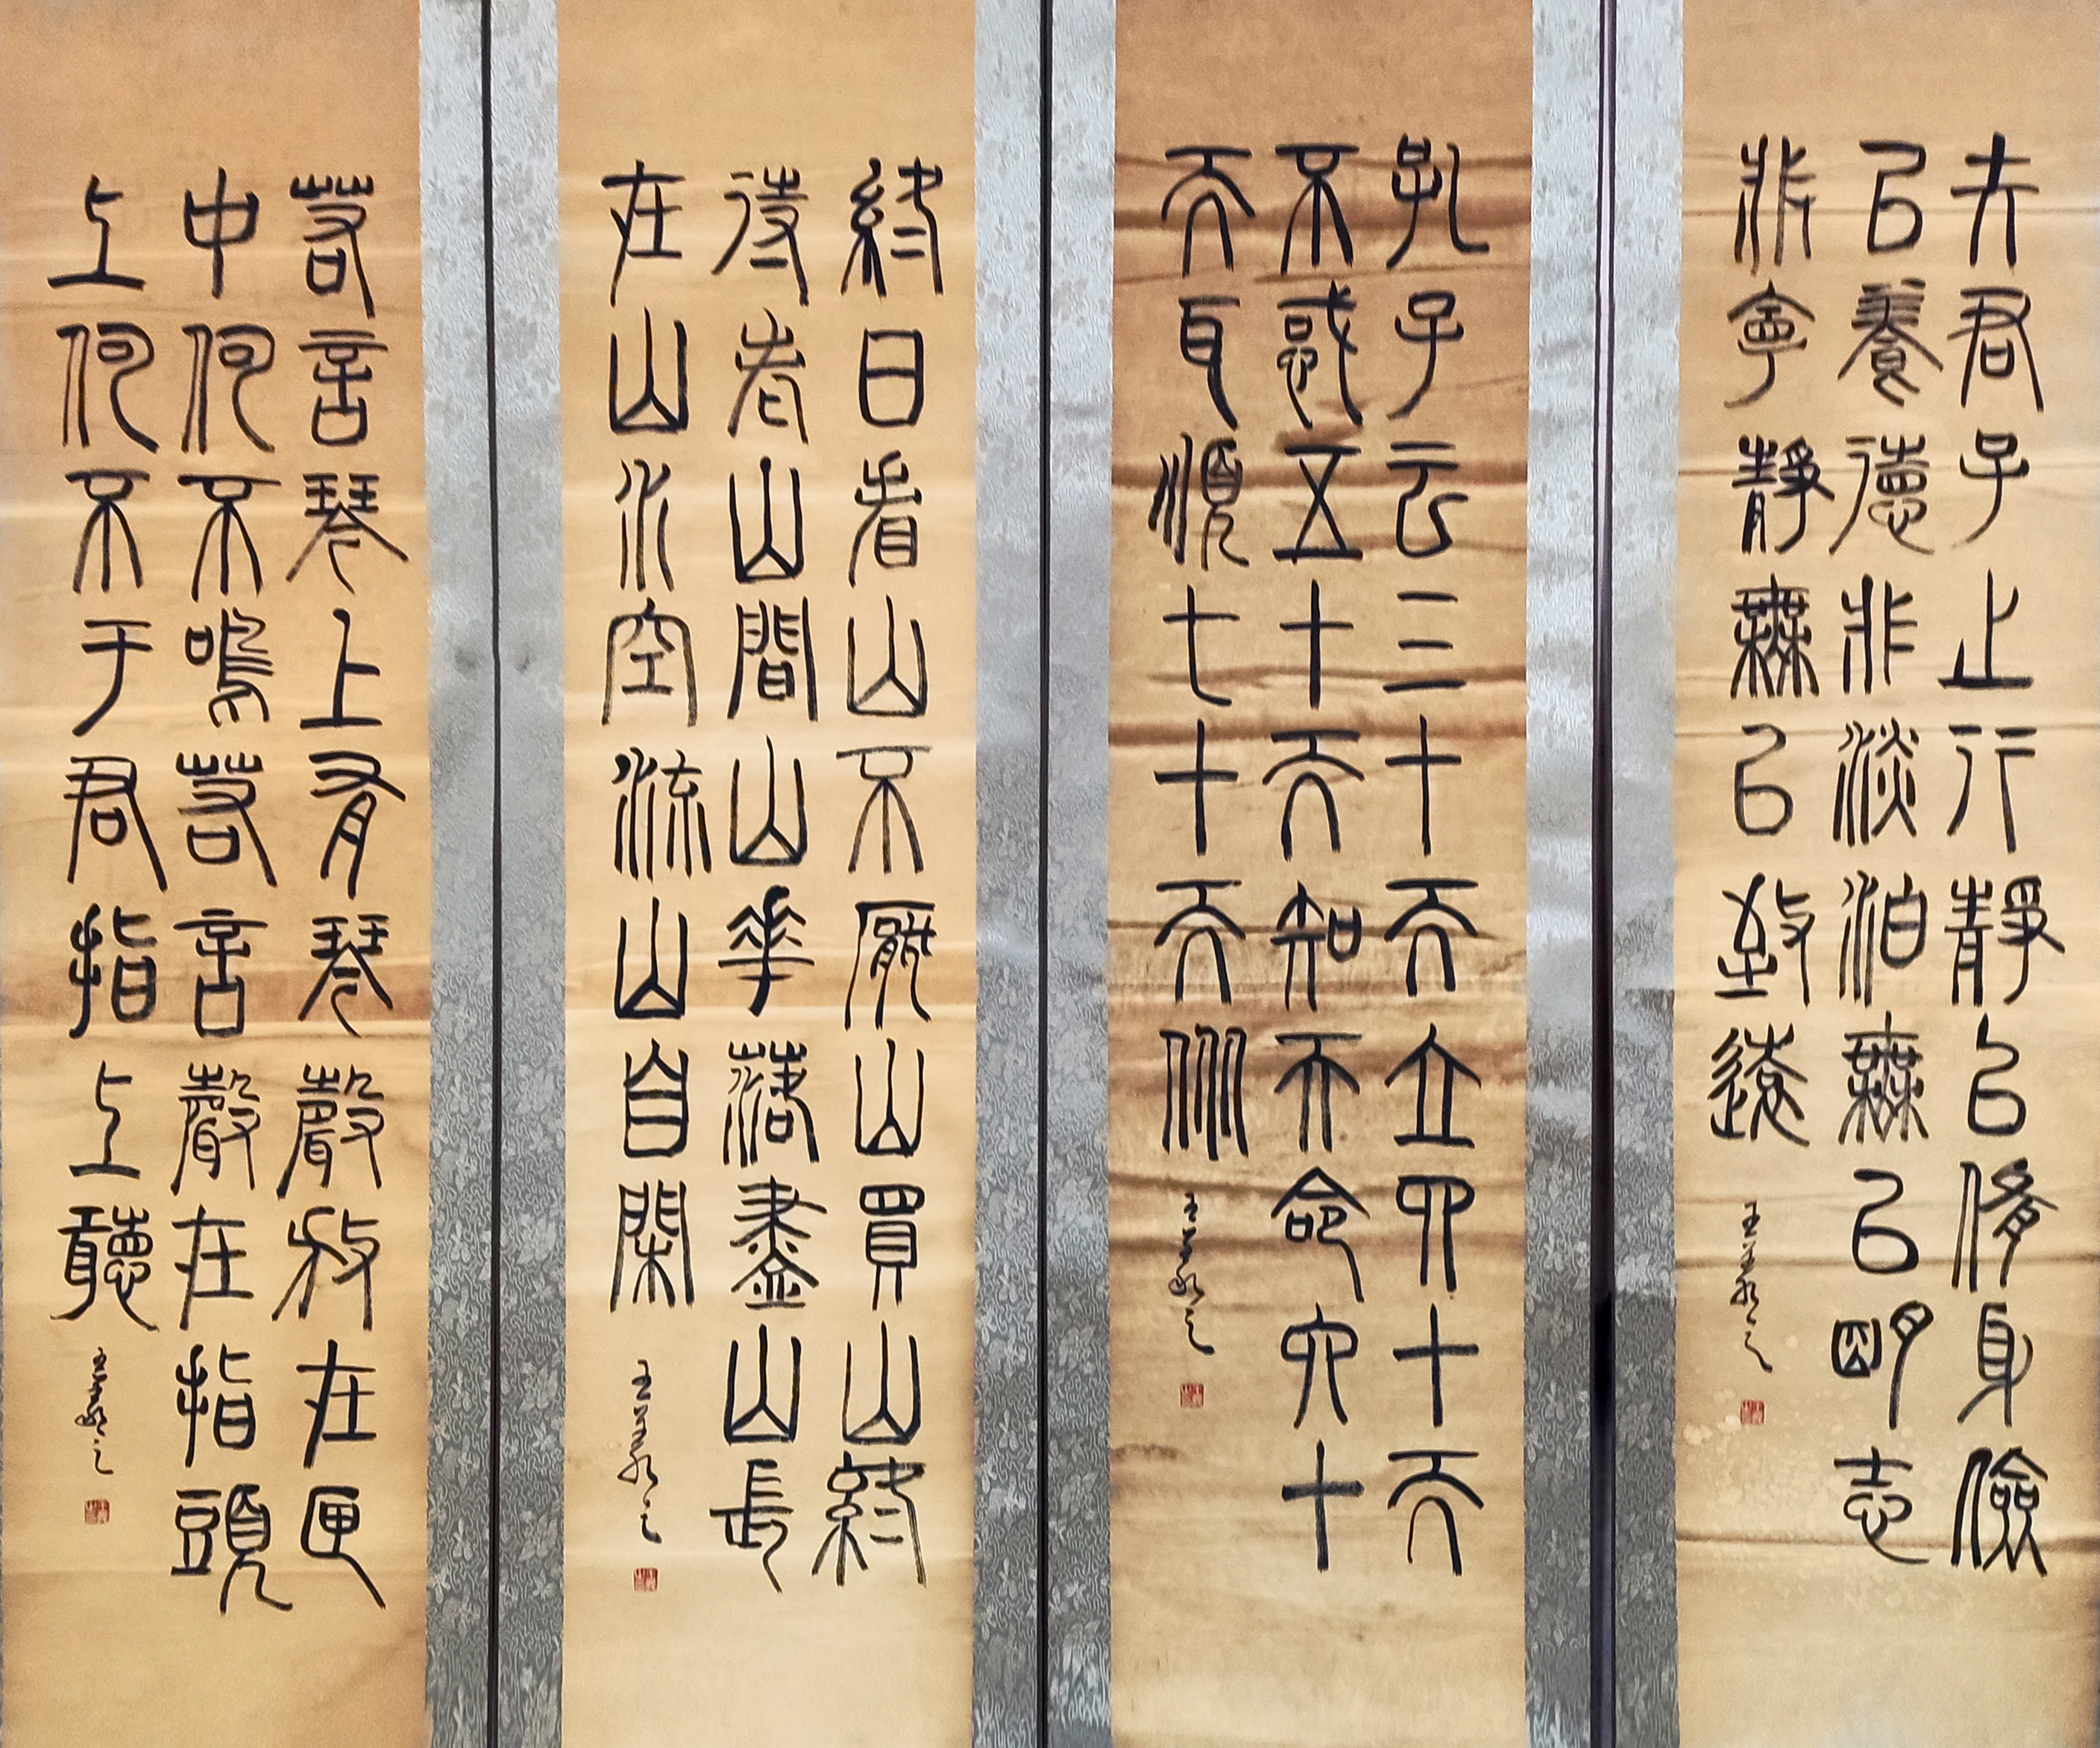 夫君子之行靜以修身儉
以養德非淡泊無以明志
非寧靜無以致遠
孔子云三十而立四十而
不惑五十而知天命六十
而耳順七十而从
終日看山不厭山買山終
待老山間山花落盡山長
在山水空流山自閑
若言琴上有琴聲放在匣
中何不鳴若言聲在指頭
上何不于君指上聽